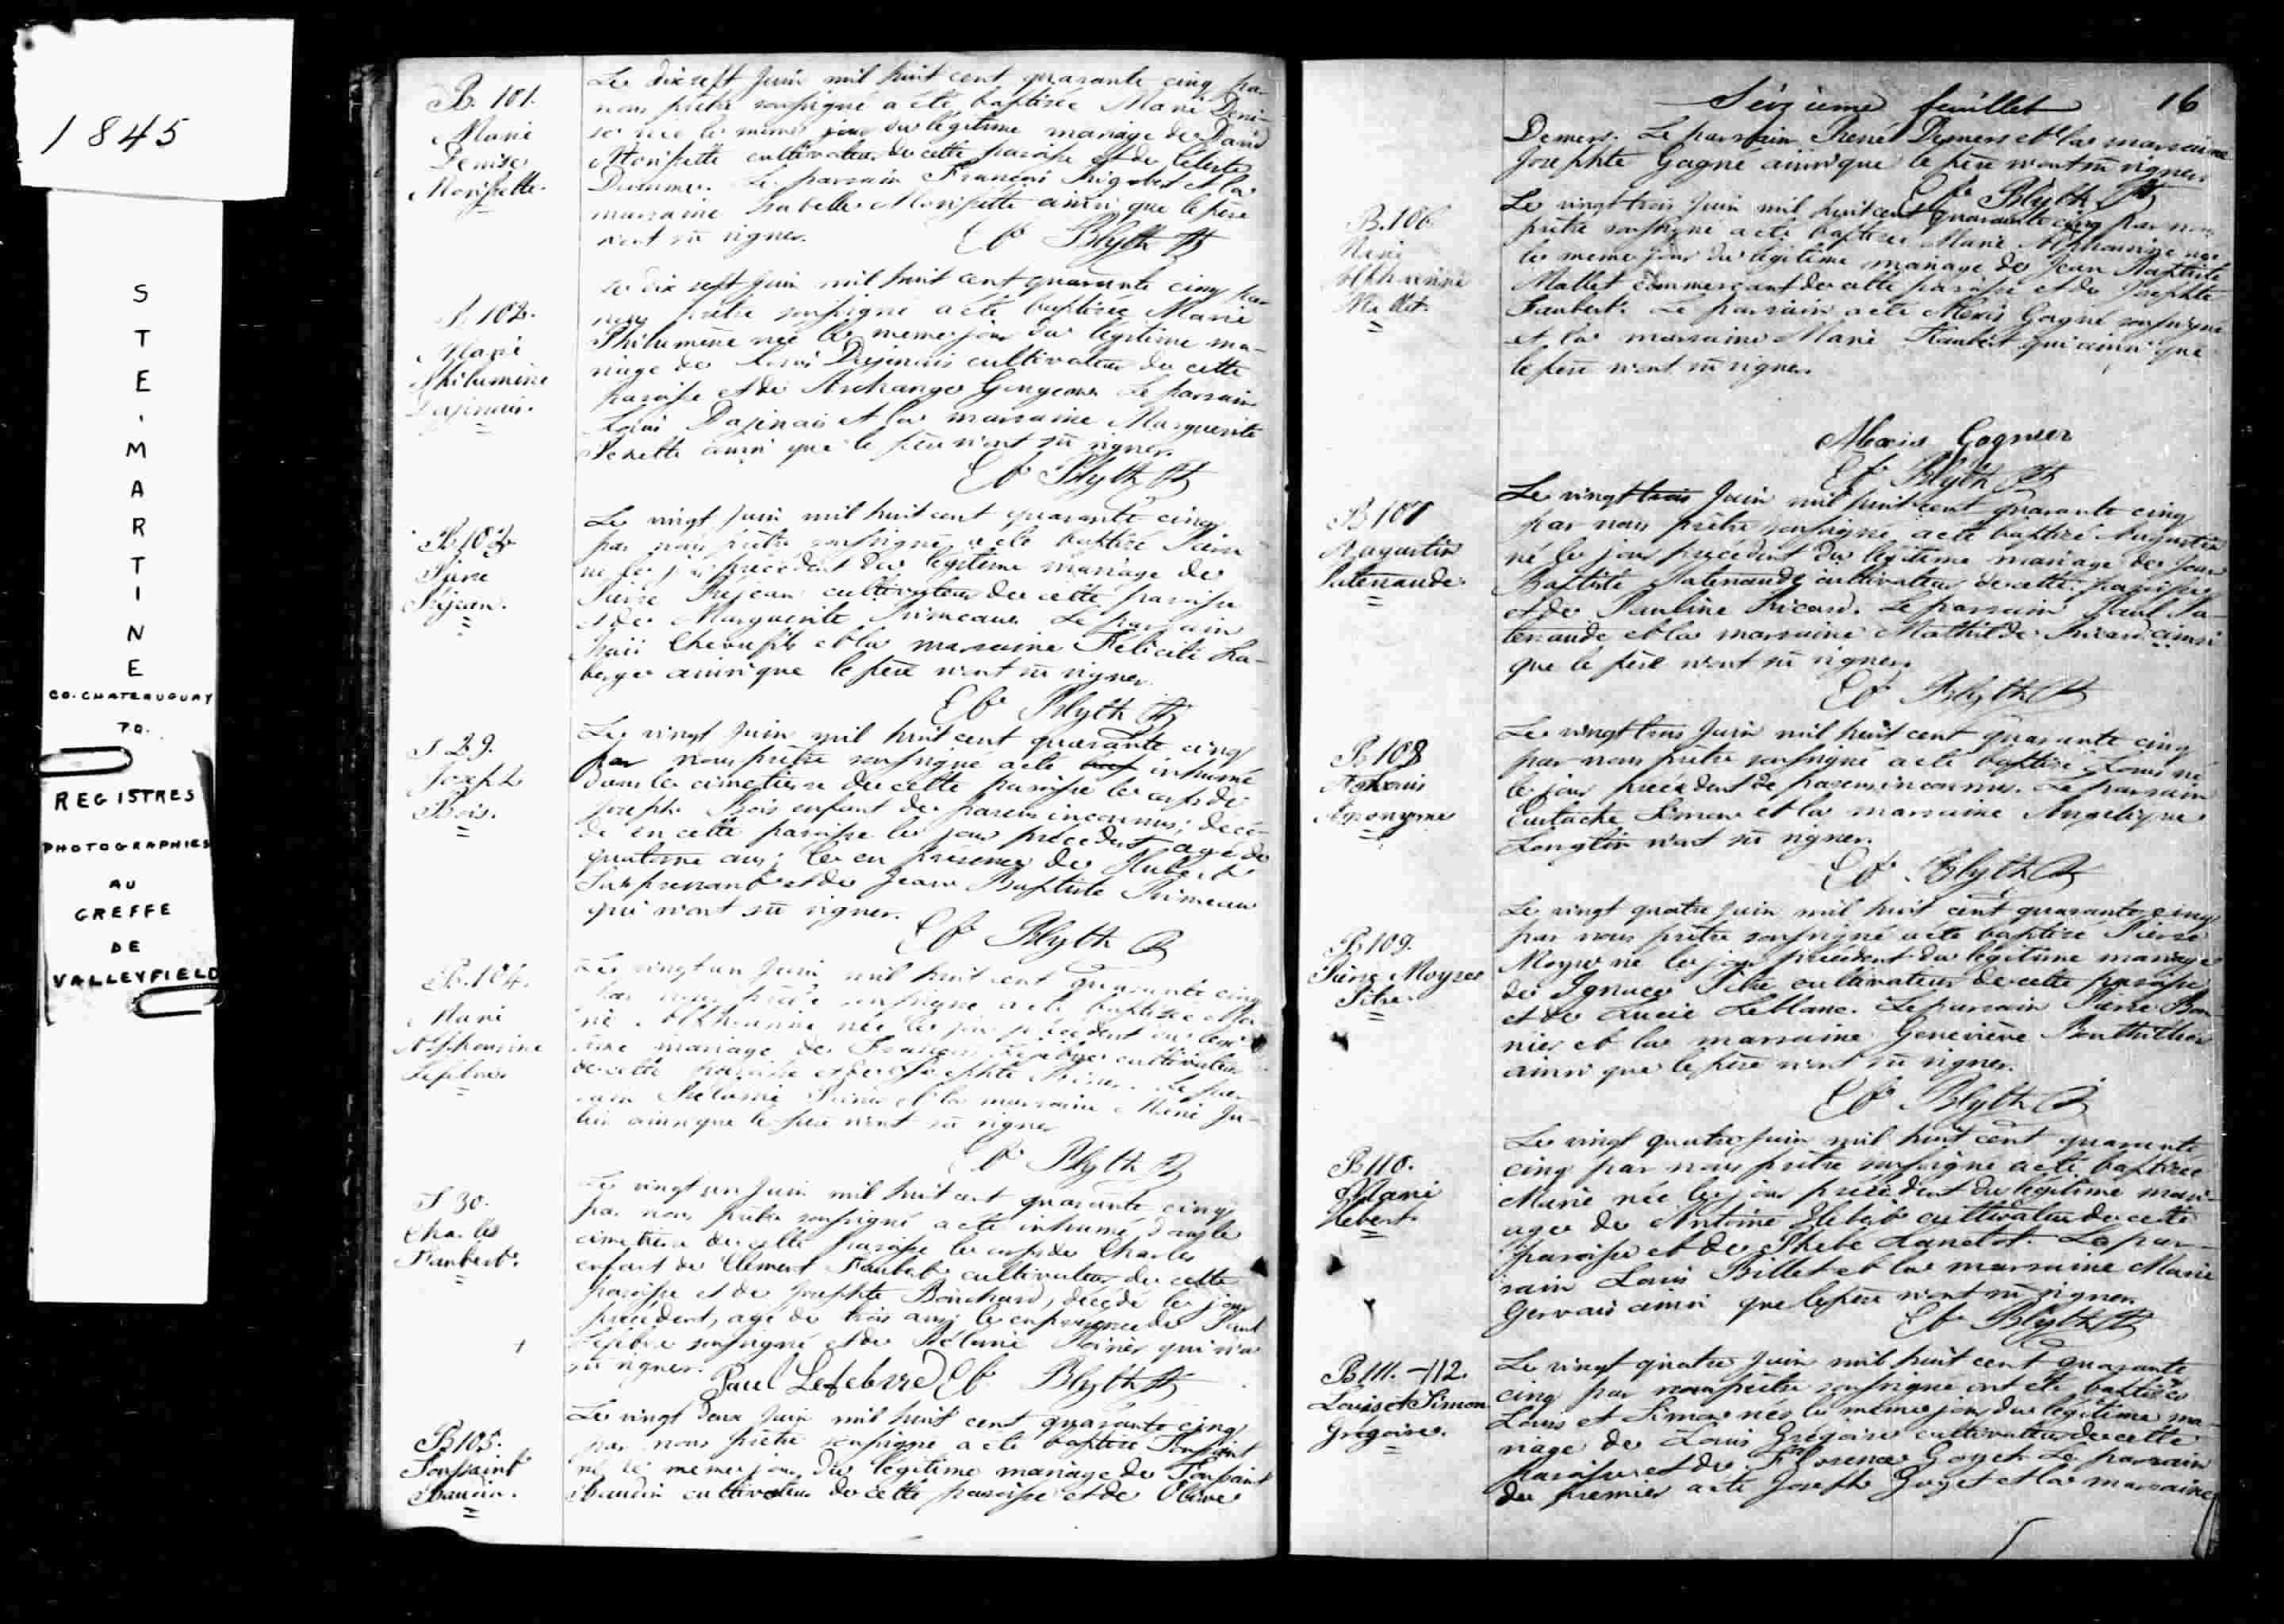 1845
STE. MARTINE
CO. CHATEAUGUAY
P.Q.
REGISTRES
PHOTOGRAPHIES
AU
GREFFE
DE
VALLEYFIELD
B. 101.
Marie
Denise
Morissette.
Le dix sept Juin mil huit cent quarante cinq par
nous prêtre soussigné a été baptisée Marie Deni-
se née le même jour du légitime mariage de David
Morissette cultivateur de cette paroisse et de Céleste
Le parrain François et la
marraine Isabelle Morissette ainsi que le père
n'ont sû signer.
Blyth Ptr
B. 102.
Marie
Philumène
Dajenais.
Le dix sept Juin mil huit cent quarante cinq par
nous prêtre soussigné a été baptisée Marie
Philumène née le même jour du légitime ma-
riage de Louis Dajenais cultivateur de cette
paroisse et de Archange Gongeau. Le parrain
Louis Dajenais et la marraine Marguerite
ainsi que le père n'ont sû signer.
Blyth Ptr
B. 103
Pierre
Préjean.
Le vingt Juin mil huit cent quarante cinq
par nous prêtre soussigné a été baptisé Pierre
né le jour précédent du légitime mariage de
Pierre Préjean cultivateur de cette paroisse
et de Marguerite Primeau. Le parrain
Chevrefils et la marraine Félicité La-
berge ainsi que le père n'ont sû signer.
Blyth Ptr
S 29.
Joseph
Bois.
Le vingt Juin mil huit cent quarante cinq
par nous prêtre soussigné a été inhumé
dans le cimetière de cette paroisse le corps de
Joseph Bois enfant de parens inconnus; décé-
dé en cette paroisse le jour précédent agé de
quatorze ans; le en présence de Hubert
Surprenant et de Jean Baptiste Primeau
qui n'ont sû signer.
Blyth Ptr
B. 104.
Marie
Alphonsine
Lefebvre
Le vingt un Juin mil huit cent quarante cinq
par nous prêtre soussigné a été baptisée Ma-
rie Alphonsine née le jour précédent du légi-
time mariage de François Lefebvre cultivateur
de cette paroisse et de Josephte Poirier. Le par-
rain Poirier et la marraine Marie Ju-
lien ainsi que le père n'ont sû signer
Blyth Ptr
S 30.
Charles
Faubert.
Le vingt un Juin mil huit cent quarante cinq
par nous prêtre soussigné a été inhumé dans le
cimetière de cette paroisse le corps de Charles
enfant de Clément Faubert cultivateur de cette
paroisse et de Josephte Bouchard, décédé le jour
précédent, agé de trois ans; le en présence de Paul
Lefebvre soussigné et de Poirier qui n'a
sû signer.
Paul Lefebvre Blyth Ptr
B 105.
Toussaint
Beaudin.
Le vingt deux Juin mil huit cent quarante cinq
par nous prêtre soussigné a été baptisé Toussaint
né le même jour du légitime mariage de Toussaint
Beaudin cultivateur de cette paroisse et de Olive
Seizième feuillet 16
Demers. Le parrain René Demers et la marraine
Josephte Gagné ainsi que le père n'ont sû signer.
Blyth Ptr
B. 106
Marie
Alphonsine
Mallet.
Le vingt trois Juin mil huit cent quarante cinq par nous
prêtre soussigné a été baptisée Marie Alphonsine née
le même jour du légitime mariage de Jean Baptiste
Mallet commerçant de cette paroisse et de Josephte
Faubert. Le parrain a été Alexis Gagné soussigné
et la marraine Marie Faubert qui ainsi que
le père n'ont sû signer.
Alexis Gagnier
Blyth Ptr
B 107
Augustin
Patenaude
Le vingt trois Juin mil huit cent quarante cinq
par nous prêtre soussigné a été baptisé Augustin
né le jour précédent du légitime mariage de Jean
Baptiste Patenaude cultivateur de cette paroisse
et de Pauline Pricard. Le parrain Paul Pa-
tenaude et la marraine Mathilde ainsi
que le père n'ont sû signer.
Blyth Ptr
B 108
Anonyme
Le vingt trois Juin mil huit cent quarante cinq
par nous prêtre soussigné a été baptisé Louis né
le jour précédent de parens inconnus. Le parrain
Eustache Simon et la marraine Angelique
Longtin n'ont sû signer.
Blyth Ptr
B 109.
Pierre Moyses
Pitre
Le vingt quatre Juin mil huit cent quarante cinq
par nous prêtre soussigné a été baptisé Pierre
Moyse né le jour précédent du légitime mariage
de Ignace Pitre cultivateur de cette paroisse
et de Lucie Leblanc. Le parrain Pierre
et la marraine Geneviève Bouthillier
ainsi que le père n'ont sû signer.
Blyth Ptr
B 110.
Marie
Hebert.
Le vingt quatre Juin mil huit cent quarante
cinq par nous prêtre soussigné a été baptisée
Marie née le jour précédent du légitime mari-
age de Antoine Hebert cultivateur de cette
paroisse et de Phebe Lanctot. Le par-
rain Louis Billet et la marraine Marie
Gervais ainsi que le père n'ont sû signer.
Blyth Ptr
B 111. - 112.
Louis et Simon
Grégoire.
Le vingt quatre Juin mil huit cent quarante
cinq par nous prêtre soussigné ont été baptisés
Louis et Simon nés le même jour du légitime ma-
riage de Louis Grégoire cultivateur de cette
paroisse et de Florence Goyet. Le parrain
du premier a été Joseph Goyet et la marraine